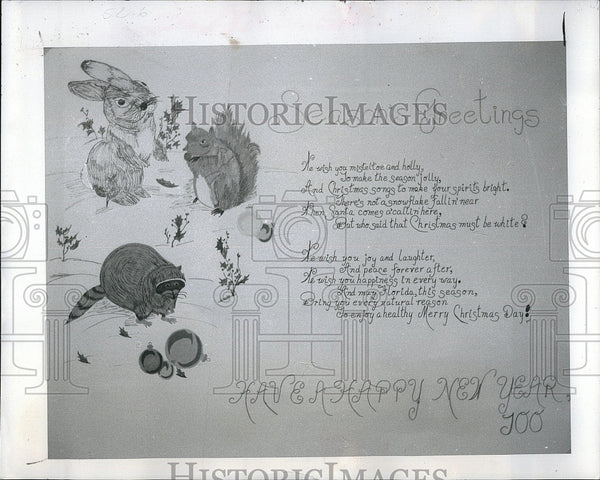 Season's Greetings
HISTORICIMAGES
We wish you misteltoe and holly,
To make the season jolly,
And Christmas songs to make four spirits bright.
There's not a snowflake fallin' near
When Santa comes a'callin here,
But who said that Christmas must be white?
We wish you joy and laughter,
And peace forever after,
We wish you happiness in every way.
And may Florida, this season,
Bring you every natural reason
To enjoy a healthy Merry Christmas Day!
HAVE A HAPPY NEW YEAR,
TOO
HISTORICIMAGES